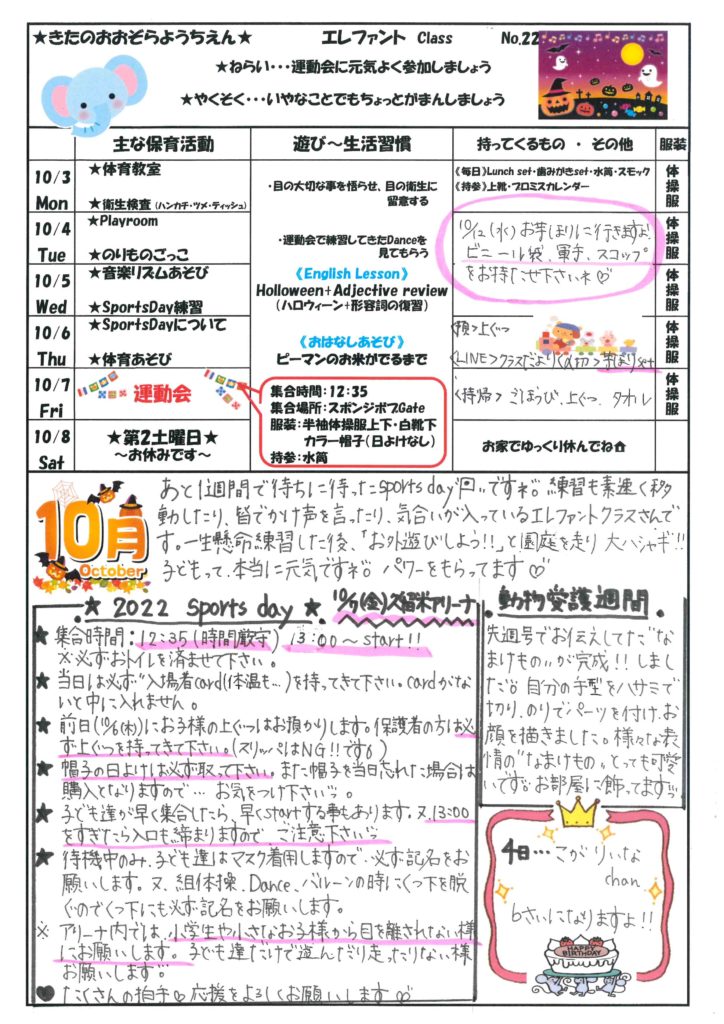 ★きたのおおぞらようちえん★ エレファント Class No.22
★ねらい・・・運動会に元気よく参加しましょう
★やくそく・・・いやなことでもちょっとがまんしましょう
主な保育活動 遊び～生活習慣 持ってくるもの ・ その他 服装
10/3 Mon
★体育教室
★衛生検査 (ハンカチ・ツメ・ティッシュ)
・目の大切な事を悟らせ、目の衛生に
留意する
《毎日》Lunch set・歯みがきset・水筒・スモック
《持参》上靴・プロミスカレンダー
体操服
10/4 Tue
★Playroom
★のりものごっこ
・運動会で練習してきたDanceを
見てもらう
10/12(水)お芋ほりに行きますよ♪
ビニール袋、軍手、スコップ
をお持たせ下さいネ♡
体操服
10/5 Wed
★音楽リズムあそび
★SportsDay練習
《English Lesson》
Holloween+Adjective review
(ハロウィーン+形容詞の復習)
体操服
10/6 Thu
★SportsDayについて
★体育あそび
《おはなしあそび》
ピーマンのお米がでるまで
<預>上ぐつ
<LINE>クラスだより<〆切>芋ほりset
体操服
10/7 Fri
運動会
集合時間：12:35
集合場所：スポンジボブGate
服装：半袖体操服上下・白靴下
カラー帽子(日よけなし)
持参：水筒
<持帰> ごほうび、上ぐつ、タオル
体操服
10/8 Sat
★第2土曜日★
～お休みです～
お家でゆっくり休んでね
10月
October
あと1週間で待ちに待ったsports dayですネ。練習も素速く移
動したり、皆でかけ声を言ったり、気合いが入っているエレファントクラスさんで
す。一生懸命練習した後、「お外遊びしよう!!」と園庭を走り大ハシャギ!!
子どもって、本当に元気ですネ。パワーをもらってます♡
★ 2022 sports day ★ 10/7(金)久留米アリーナ
★ 集合時間：12:35(時間厳守) 13:00～start!!
※必ずおトイレを済ませて下さい。
★ 当日は必ず"入場者card(体温も…)を持ってきて下さい。cardがな
いと中に入れません。
★ 前日(10/6(木))にお子様の上ぐつはお預かりします。保護者の方は必
ず上ぐつを持ってきて下さい。(スリッパはNG!!です)
★ 帽子の日よけは必ず取って下さい。また帽子を当日忘れた場合は
購入となりますので… お気をつけ下さい。
★ 子ども達が早く集合したら、早くstartする事もあります。又、13:00
をすぎたら入口も締まりますので、ご注意下さい
★ 待機中のみ、子ども達はマスク着用しますので、必ず記名をお
願いします。又、組体操、Dance、バルーンの時にくつ下を脱
ぐのでくつ下にも必ず記名をお願いします。
※ アリーナ内では、小学生や小さなお子様から目を離されない様
にお願いします。子ども達だけで遊んだり走ったりない様
お願いします。
♥ たくさんの拍手♡応援をよろしくお願いします♡
動物愛護週間
先週号でお伝えしてた"な
まけもの"が完成!!しまし
た。自分の手型をハサミで
切り、のりでパーツを付け、お
顔を描きました。様々な表
情の"なまけもの"とっても可愛
いです。お部屋に飾ってます
4日…こがりいな
chan
6さいになりますよ!!
HAPPY BIRTHDAY